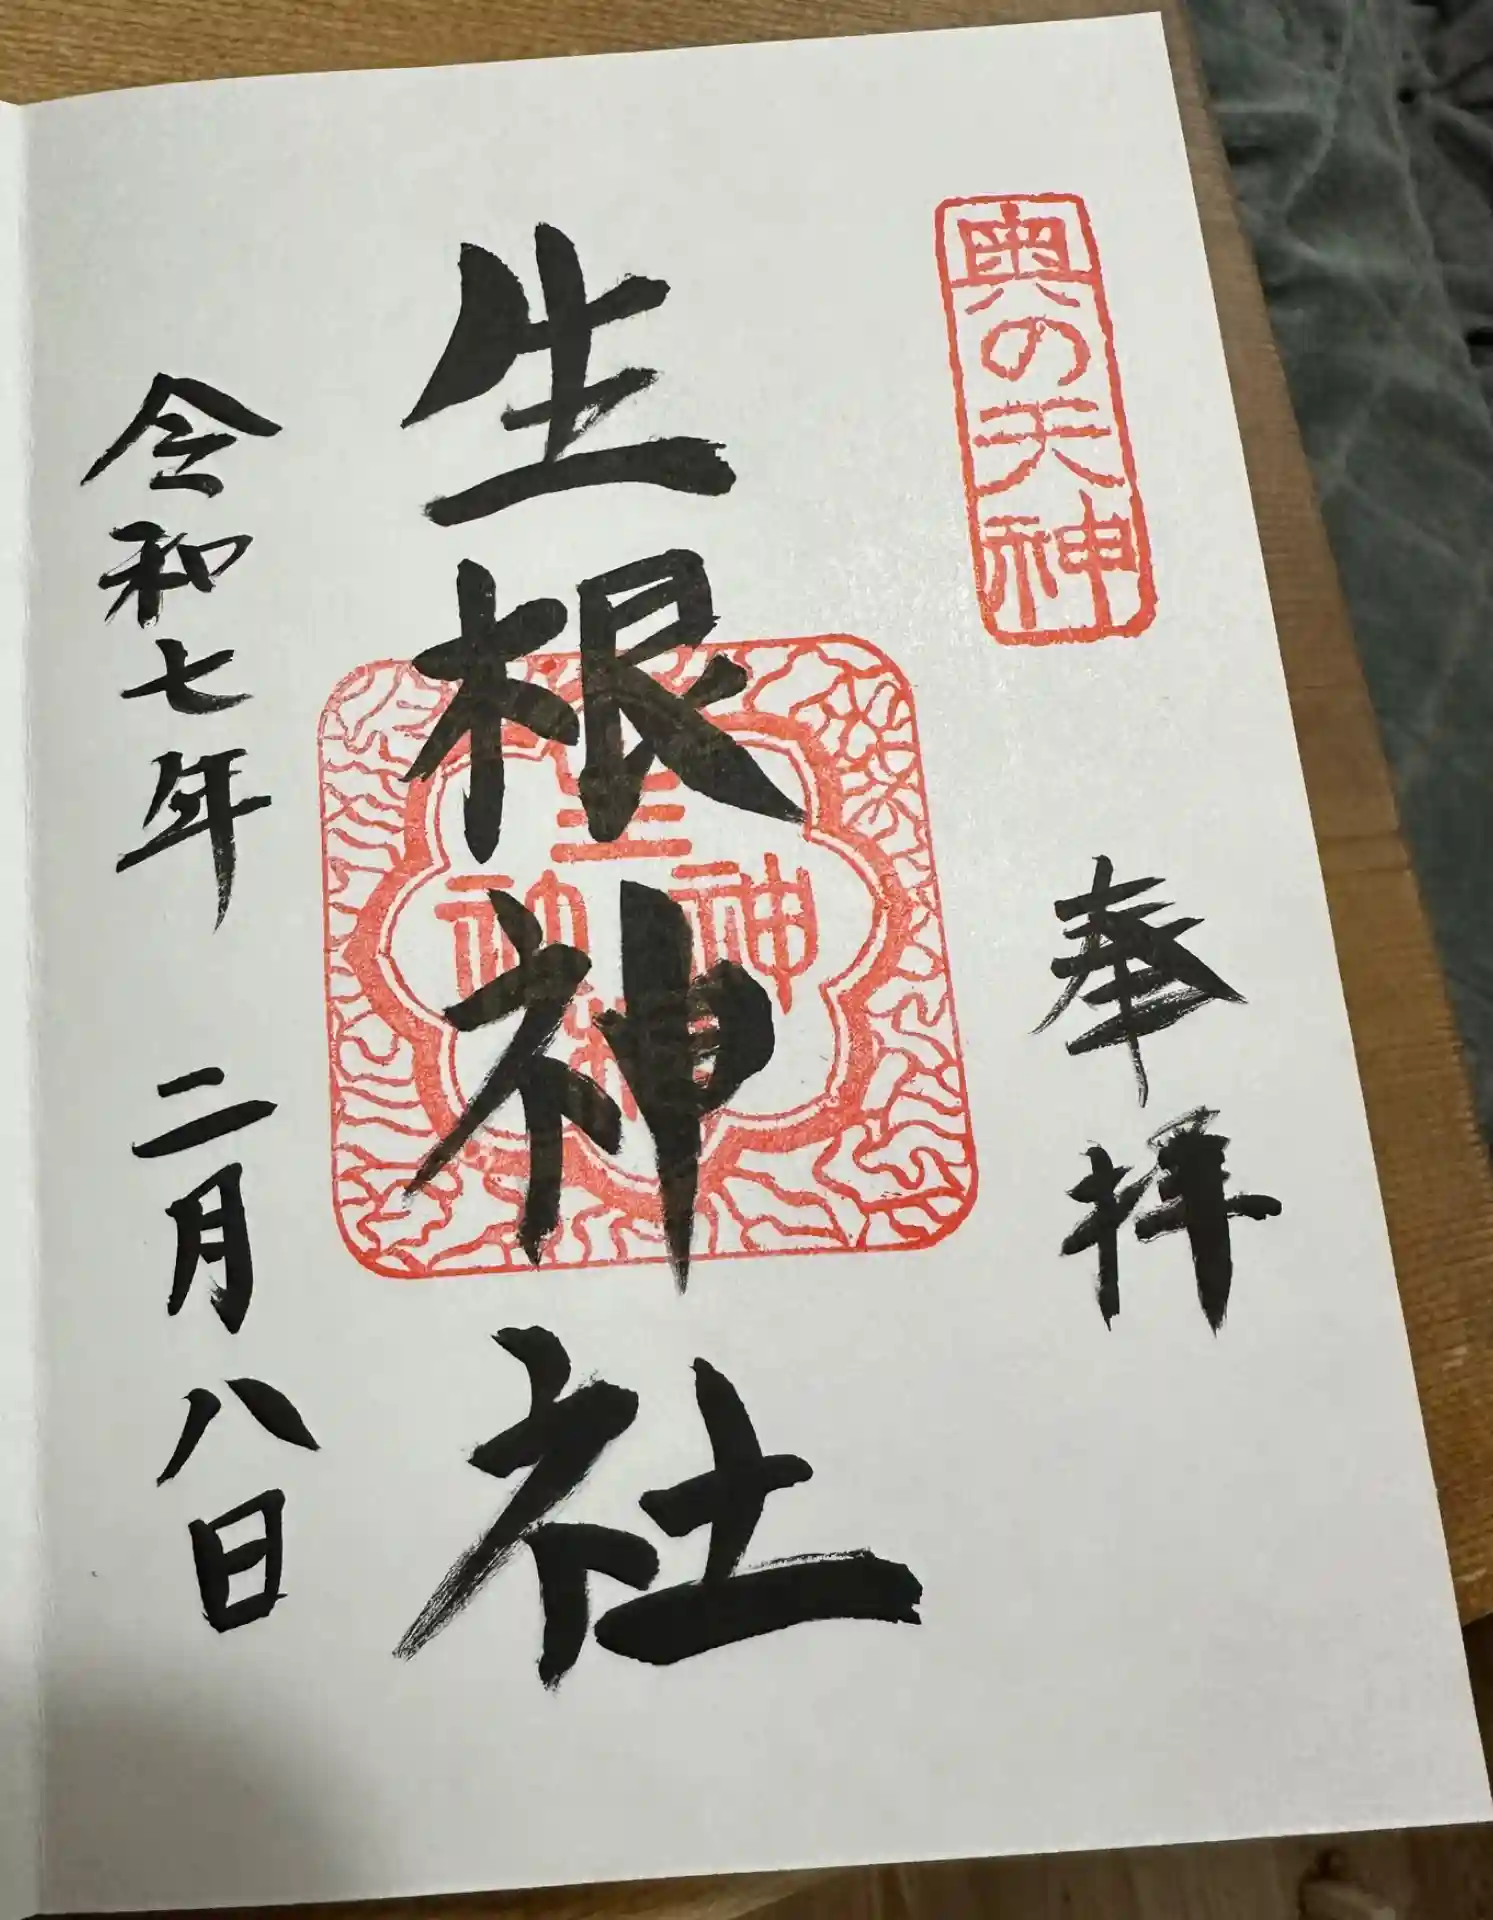 奥の天神
奉拝
生根神社
令和七年 二月八日